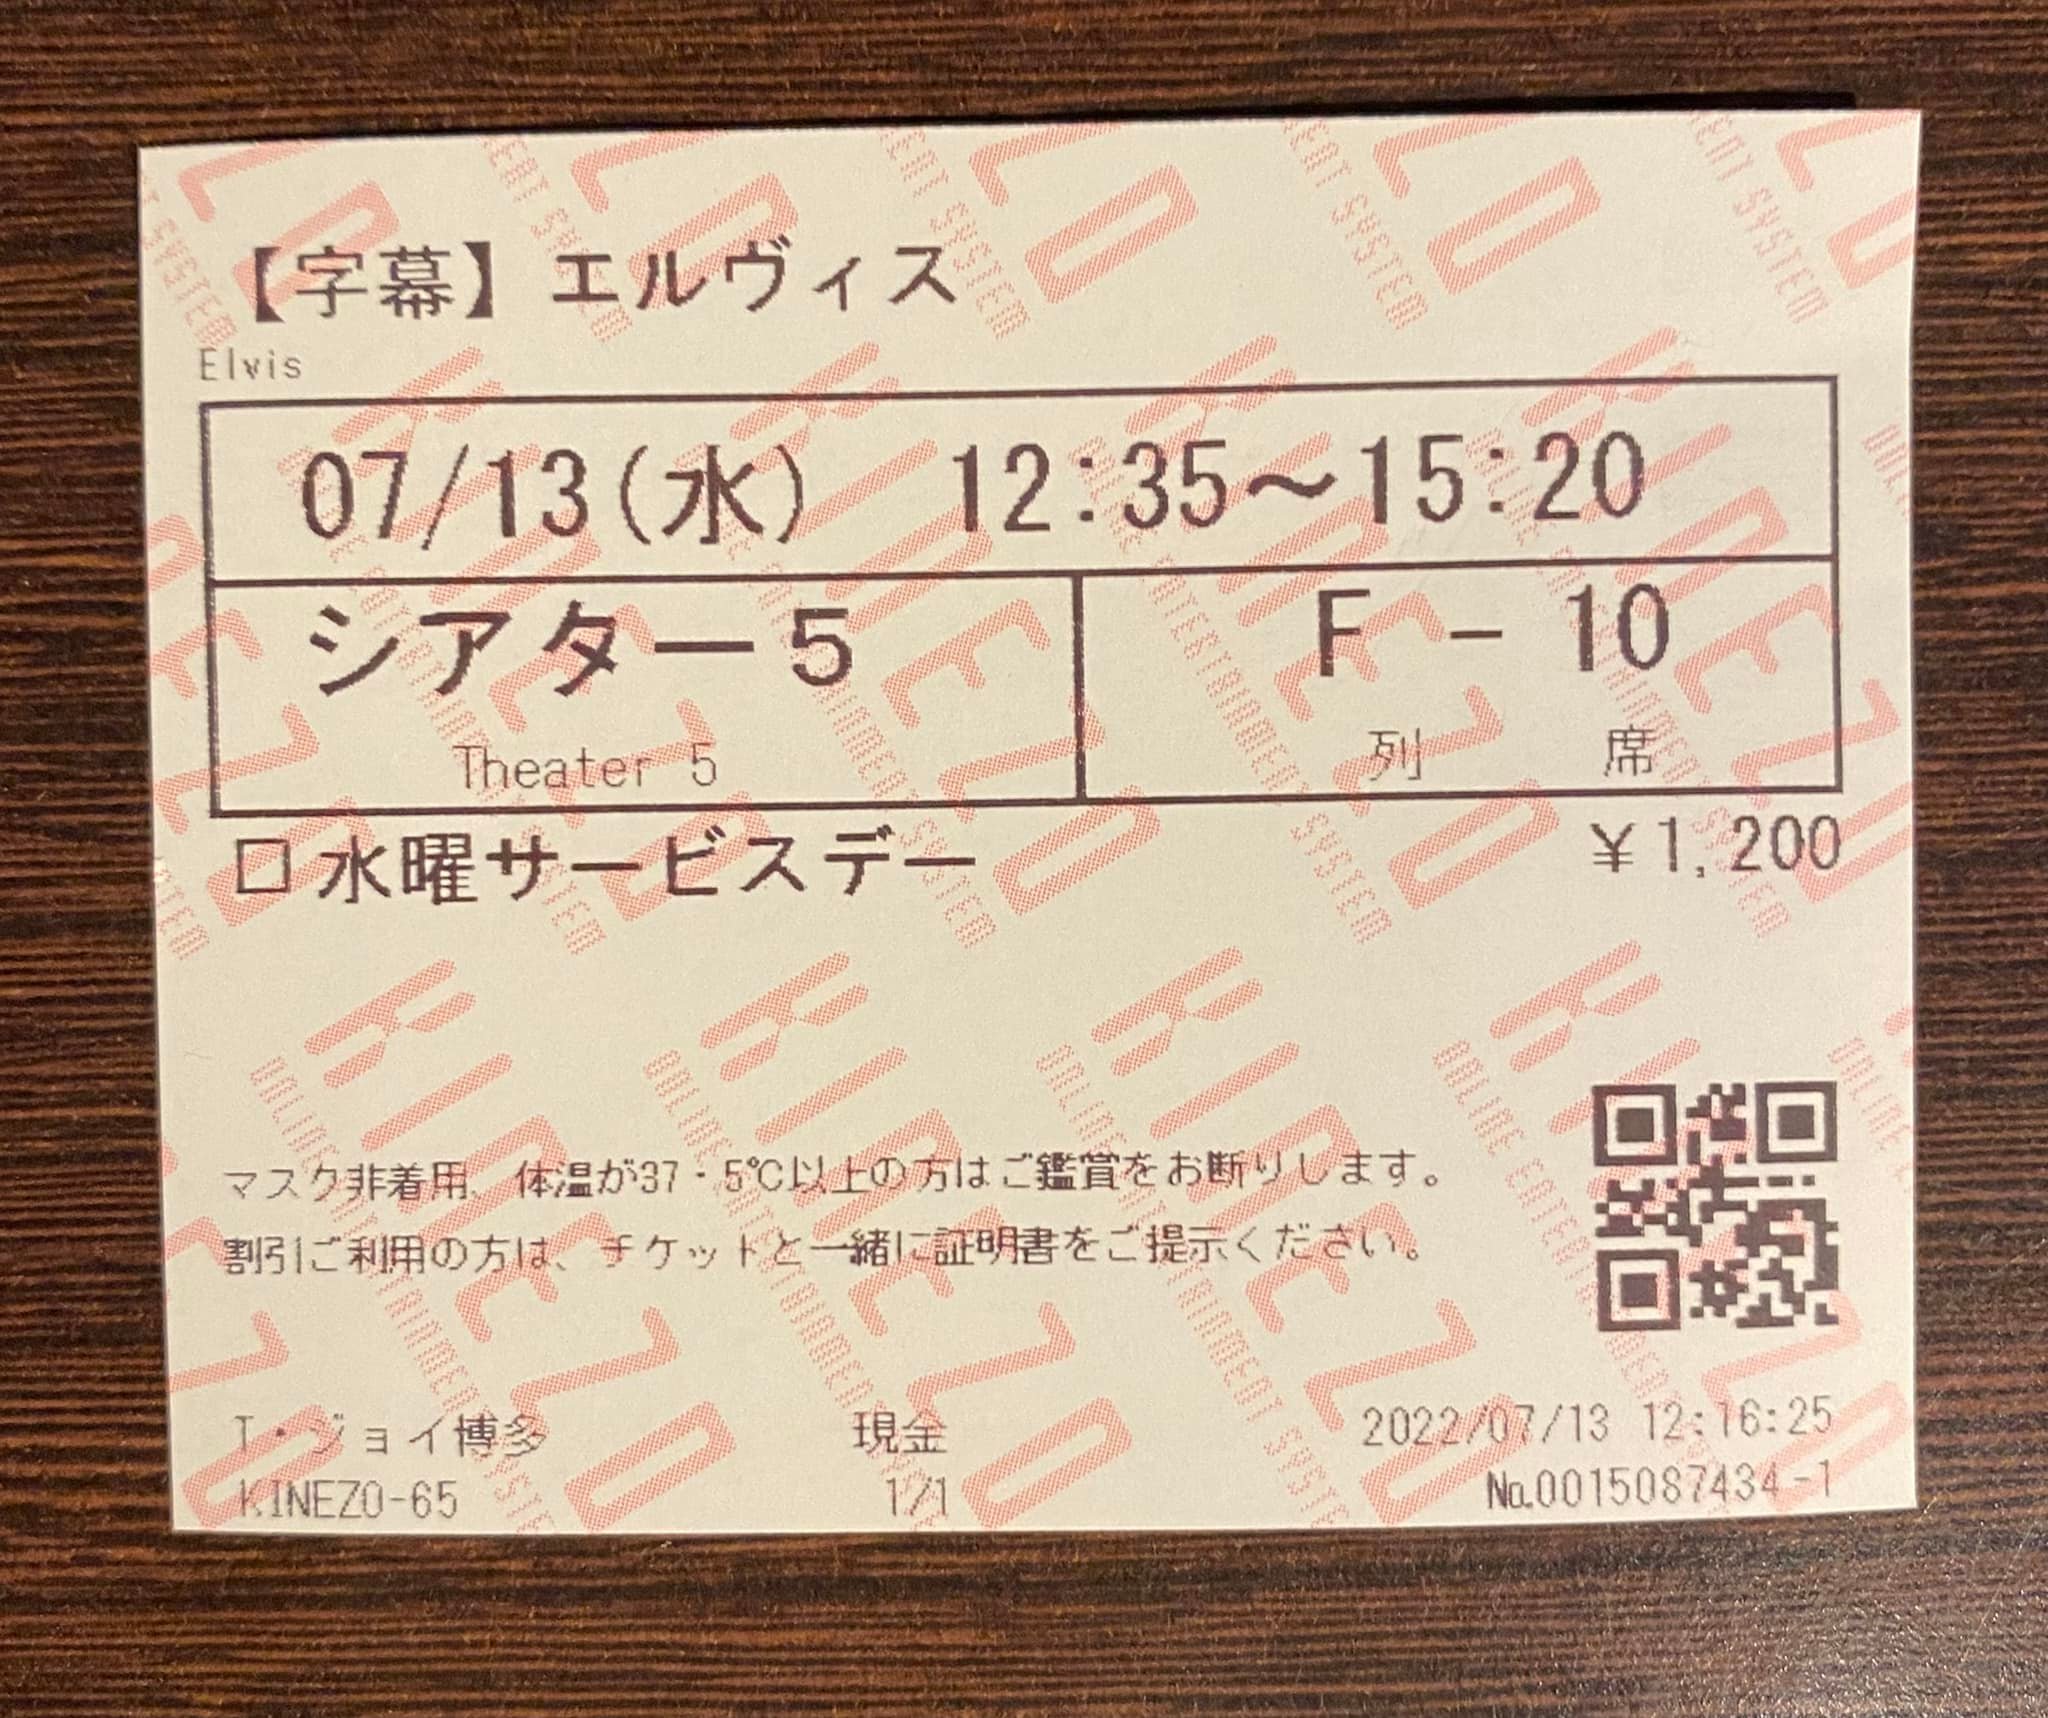 【字幕】エルヴィス
Elvis
07/13(水) 12:35～15:20
シアター5
Theater 5
F - 10
列 席
□水曜サービスデー ¥1,200
マスク非着用、体温が37・5℃以上の方はご鑑賞をお断りします。
割引ご利用の方は、チケットと一緒に証明書をご提示ください。
T・ジョイ博多 現金 2022/07/13 12:16:25
KINEZO-65 1/1 No.0015087434-1
KINEZO
ONLINE ENTERTAINMENT SYSTEM